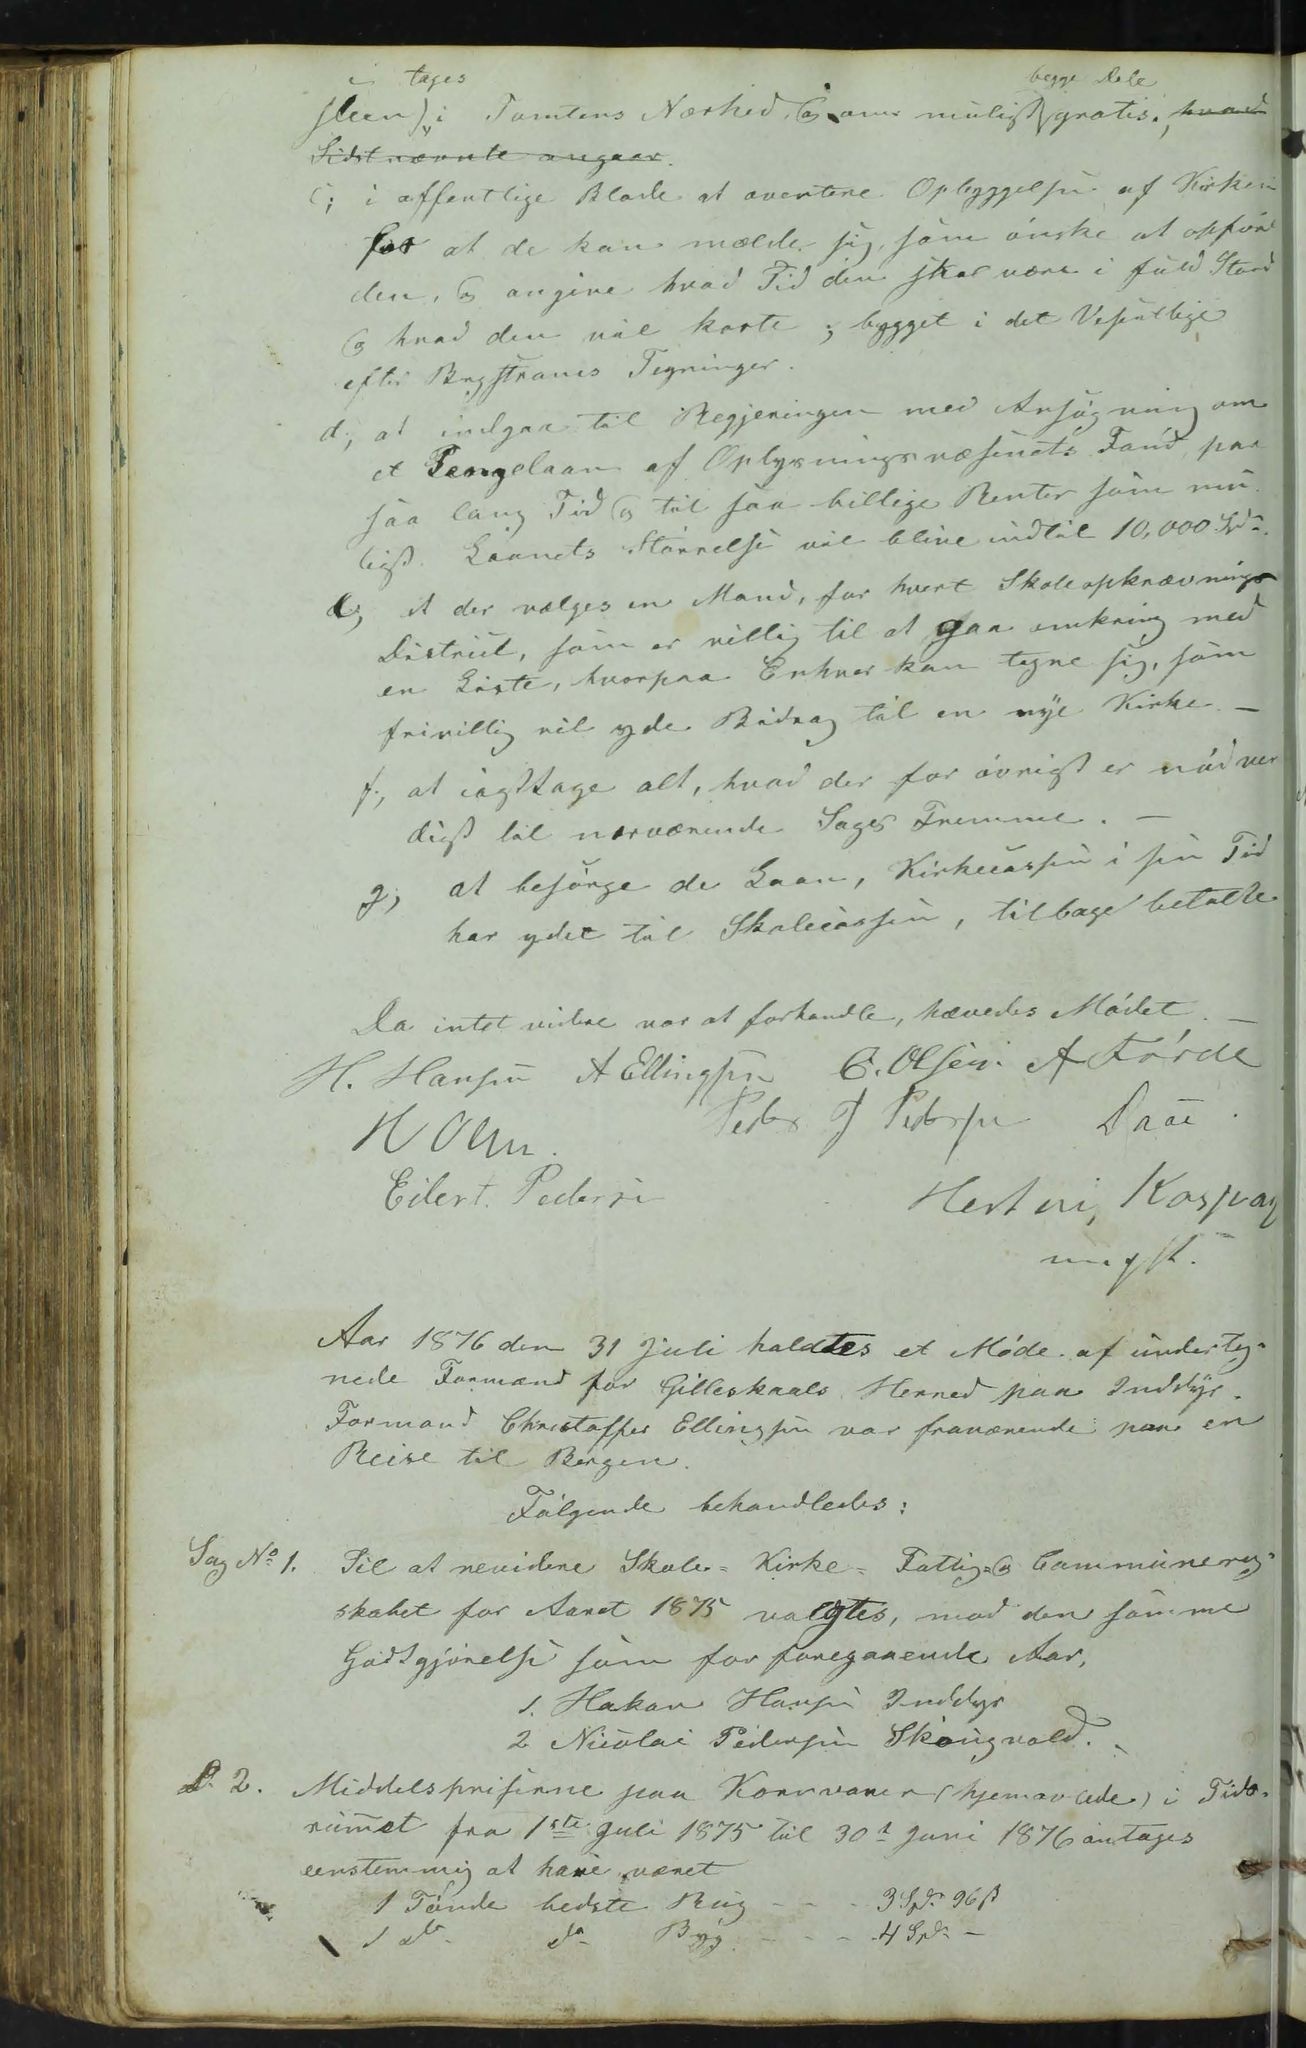 tages begge Dele
steen) i Tomtens Nærhed, og om muligt gratis, hvad
Sidstnævnte angaar.
c; i offentlige Blade at avertere Opbyggelsen af Kirken
for at de kan melde sig, som ønske at opføre
den, og angive hvad Tid den skal være i fuld Stand
og hvad den vil koste; bygget i det Vesentlige
efter Bergstrøms Tegninger.
d; at indgaa til Regjeringen med Ansøgning om
et Pengelaan af Oplysningsvæsenets Fond paa
saa lang Tid og til saa billige Renter som mu-
ligt. Laanets Størrelse vil blive indtil 10,000 Spd.
e; at der vælges en Mand, for hvert Skoleopkrævnings
District, som er villig til at gaa omkring med
en Liste, hvorpaa Enhver kan tegne sig, som
frivillig vil yde Bidrag til en nye Kirke. —
f; at iagttage alt, hvad der for øvrigt er nødven
digt til nærværende Sags Fremme. —
g; at besørge de Laan, Kirkecassen i sin Tid
har ydet til Skolecassen, tilbagebetalte
Da intet videre var at forhandle, hævedes Mødet. —
H. Hansen A Ellingsen C. Olsen A Førde
H Olsen. Peder J Pedersen Daae.
Eilert Pedersen Hertvi, Kaspar
m. p. P.
Aar 1876 den 31 Juli holdtes et Møde af underteg-
nede Formænd for Gilleskaals Herred paa Inddyr.
Formand Christoffer Ellingsen var fraværende paa en
Reise til Bergen.
Følgende behandledes:
Sag No 1. Til at revidere Skole- Kirke- Fattig- og Communeregn-
skabet for Aaret 1875 valgtes, mod den samme
Godtgjørelse som for foregaaende Aar,
1. Hakon Hansen Inddyr
2 Nicolai Pedersen Skaugvold.
D. 2. Middelspriserne paa Kornvarer (hjemavlede) i Tids-
rummet fra 1ste Juli 1875 til 30t Juni 1876 antages
eenstemmig at have været
1 Tønde bedste Rug - - - 3 Spd. 96 ß
1 do do Byg - - - - 4 Spd. —